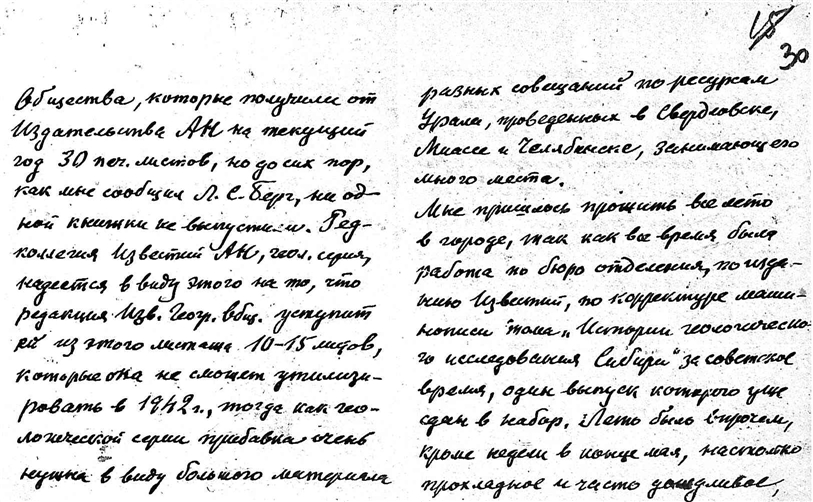 Общества, которые получили от
Издательства АН на текущий
год 30 печ. листов, но до сих пор,
как мне сообщил Л. С. Берг, ни од-
ной книжки не выпустили. Ред-
коллегия Известий АН, геол. серия,
надеется в виду этого на то, что
редакция Изв. Геогр. общ. уступит
ей из этого листажа 10-15 листов,
которые она не сможет утилизи-
ровать в 1942 г., тогда как гео-
логической серии прибавка очень
нужна в виду большого материала
30
разных совещаний по ресурсам
Урала, проведенных в Свердловске,
Миассе и Челябинске, занимающего
много места.
Мне пришлось прожить все лето
в городе, так как все время была
работа по бюро отделения, по изда-
нию Известий, по корректуре маши-
нописи тома „Истории геологическо-
го исследования Сибири" за советское
время, один выпуск которого уже
сдан в набор. Лето было впрочем,
кроме недели в конце мая, настолько
прохладное и часто дождливое,